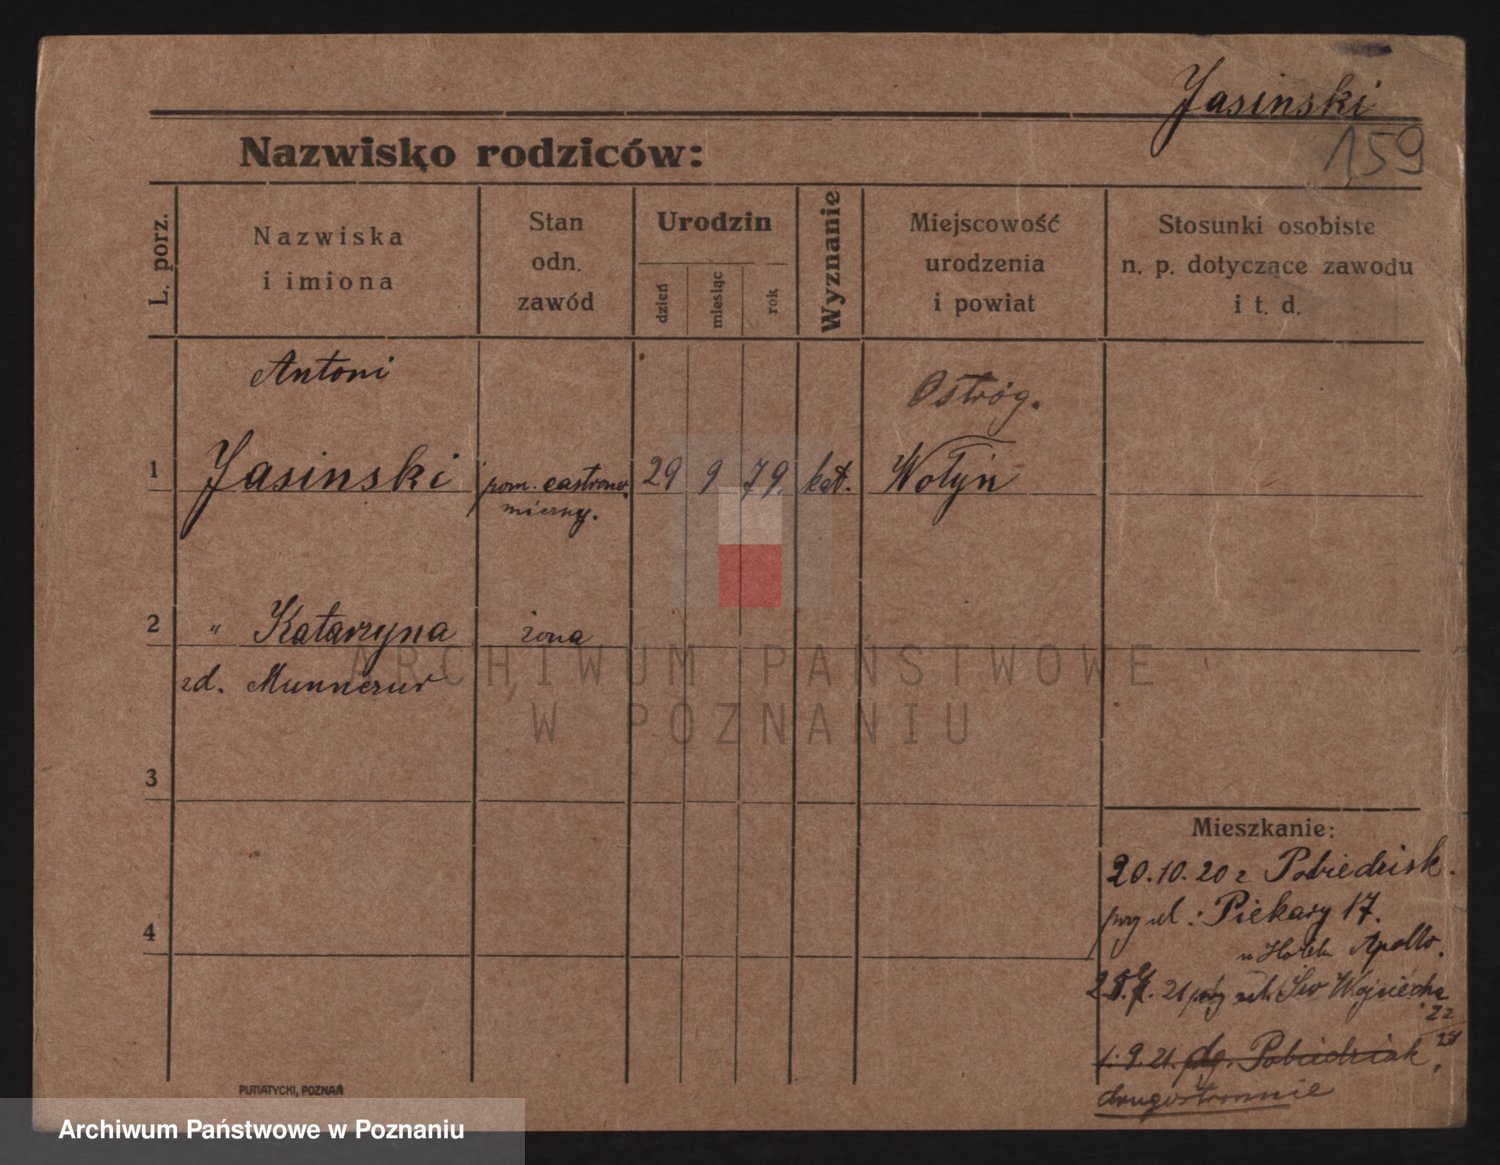 Jasinski
159
Nazwisko rodziców:
L. porz.
Nazwiska
i imiona
Stan
odn.
zawód
Urodzin
dzień
miesiąc
rok
Wyznanie
Miejscowość
urodzenia
i powiat
Stosunki osobiste
n. p. dotyczące zawodu
i t. d.
Antoni
Ostróg.
1 Jasinski pom. 29 9 79. kat. Wołyń
2 " Katarzyna żona
zd.
ARCHIWUM PAŃSTWOWE
W POZNANIU
3
4
Mieszkanie:
20.10.20 z Pobiedzisk.
przy ul: Piekary 17.
Apollo.
21 przy ul. Św Wojciecha
22
1.9.21.
drugostronnie
PUTIATYCKI, POZNAŃ
Archiwum Państwowe w Poznaniu